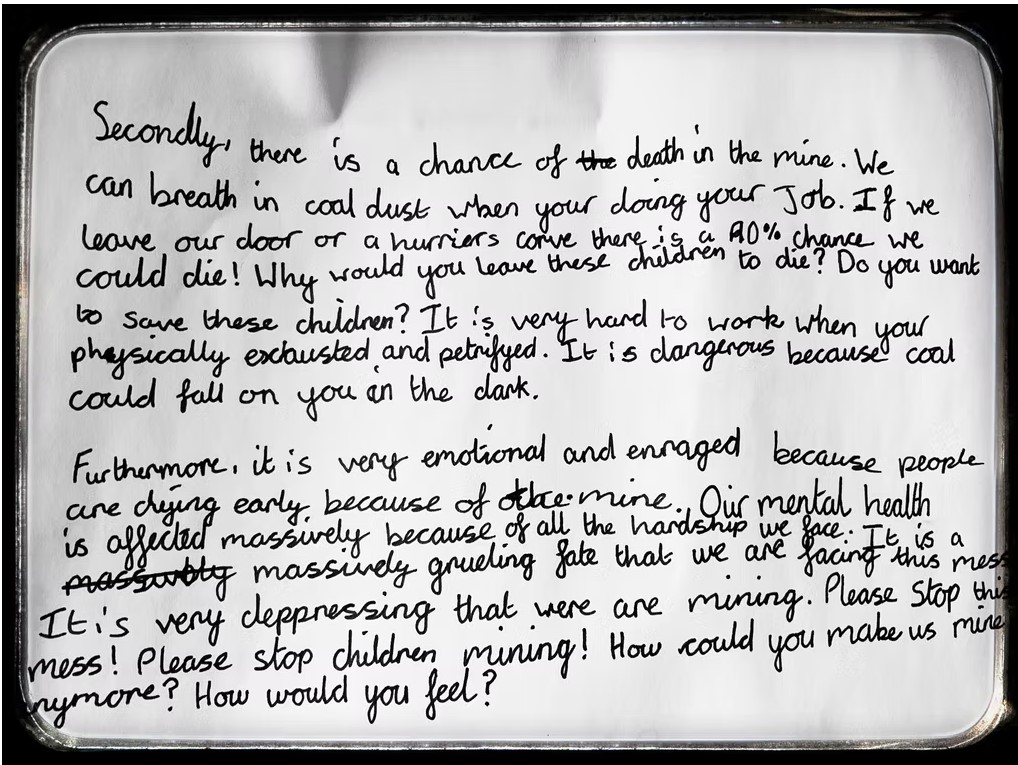 Secondly, there is a chance of the death in the mine. We
can breath in coal dust when your doing your Job. If we
leave our door or a hurriers corve there is a 90% chance we
could die! Why would you leave these children to die? Do you want
to save these children? It is very hard to work when your
physically exhausted and petrifyed. It is dangerous because coal
could fall on you in the dark.
Furthermore, it is very emotional and enraged because people
are dying early because of the mine. Our mental health
is affected massively because of all the hardship we face. It is a
massively grueling fate that we are facing this mess
It is very deppressing that were are mining. Please Stop this
mess! Please stop children mining! How could you make us mine
nymore? How would you feel?